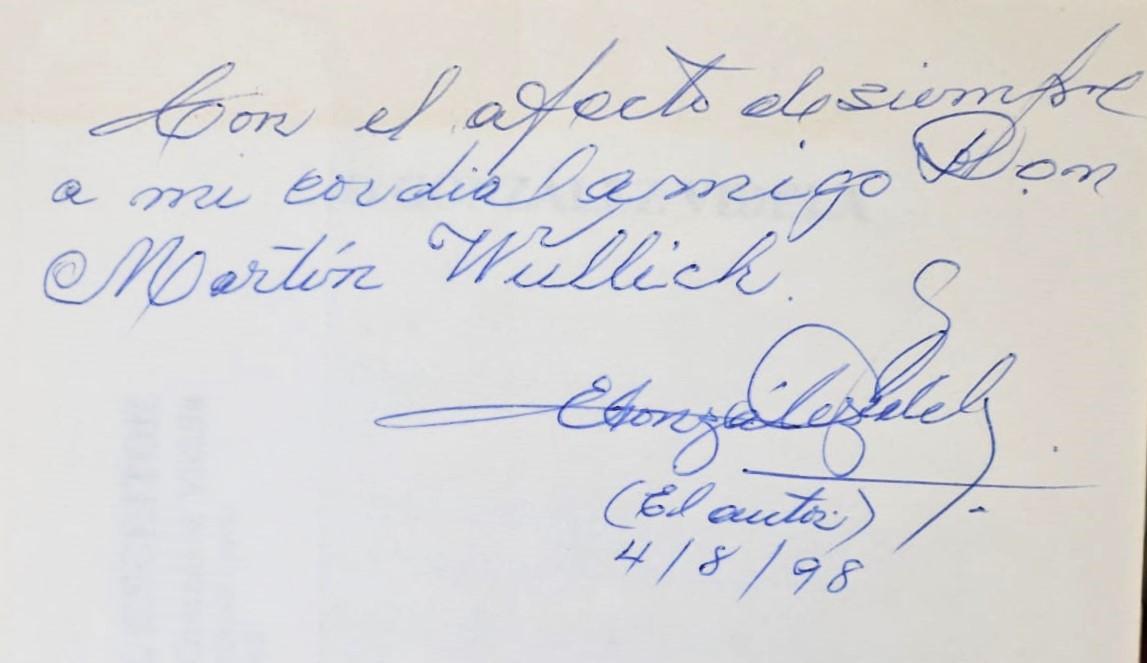 Con el afecto de siempre
a mi cordial amigo Don
Martín Wullich.
(El autor)
4/8/98